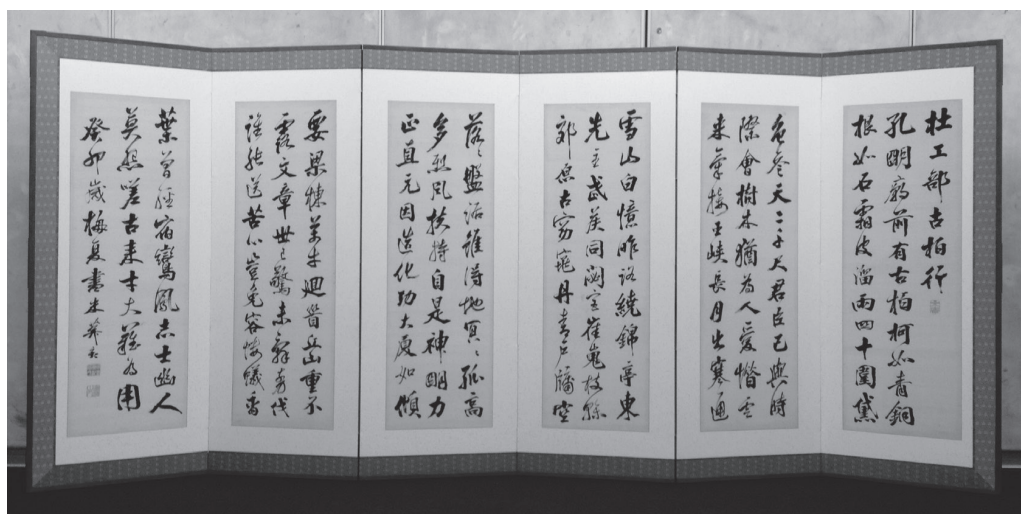 杜工部古柏行
孔明廟前有古柏柯如青銅
根如石霜皮溜雨四十圍黛
色參天二千尺君臣已與時
際會樹木猶為人愛惜雲
来氣接巫峽長月出寒通
雪山白憶昨路繞錦亭東
先主武侯同閟宮崔嵬枝幹
郊原古窈窕丹青戶牖空
落々盤踞雖得地冥々孤高
多烈風扶持自是神明力
正直元因造化功大廈如傾
要梁棟萬牛廻首丘山重不
露文章世已驚未辭剪伐
誰能送苦心豈免容螻蟻香
葉曾經宿鸞鳳志士幽人
莫怨嗟古来才大難為用
癸卯歲梅夏書米葊